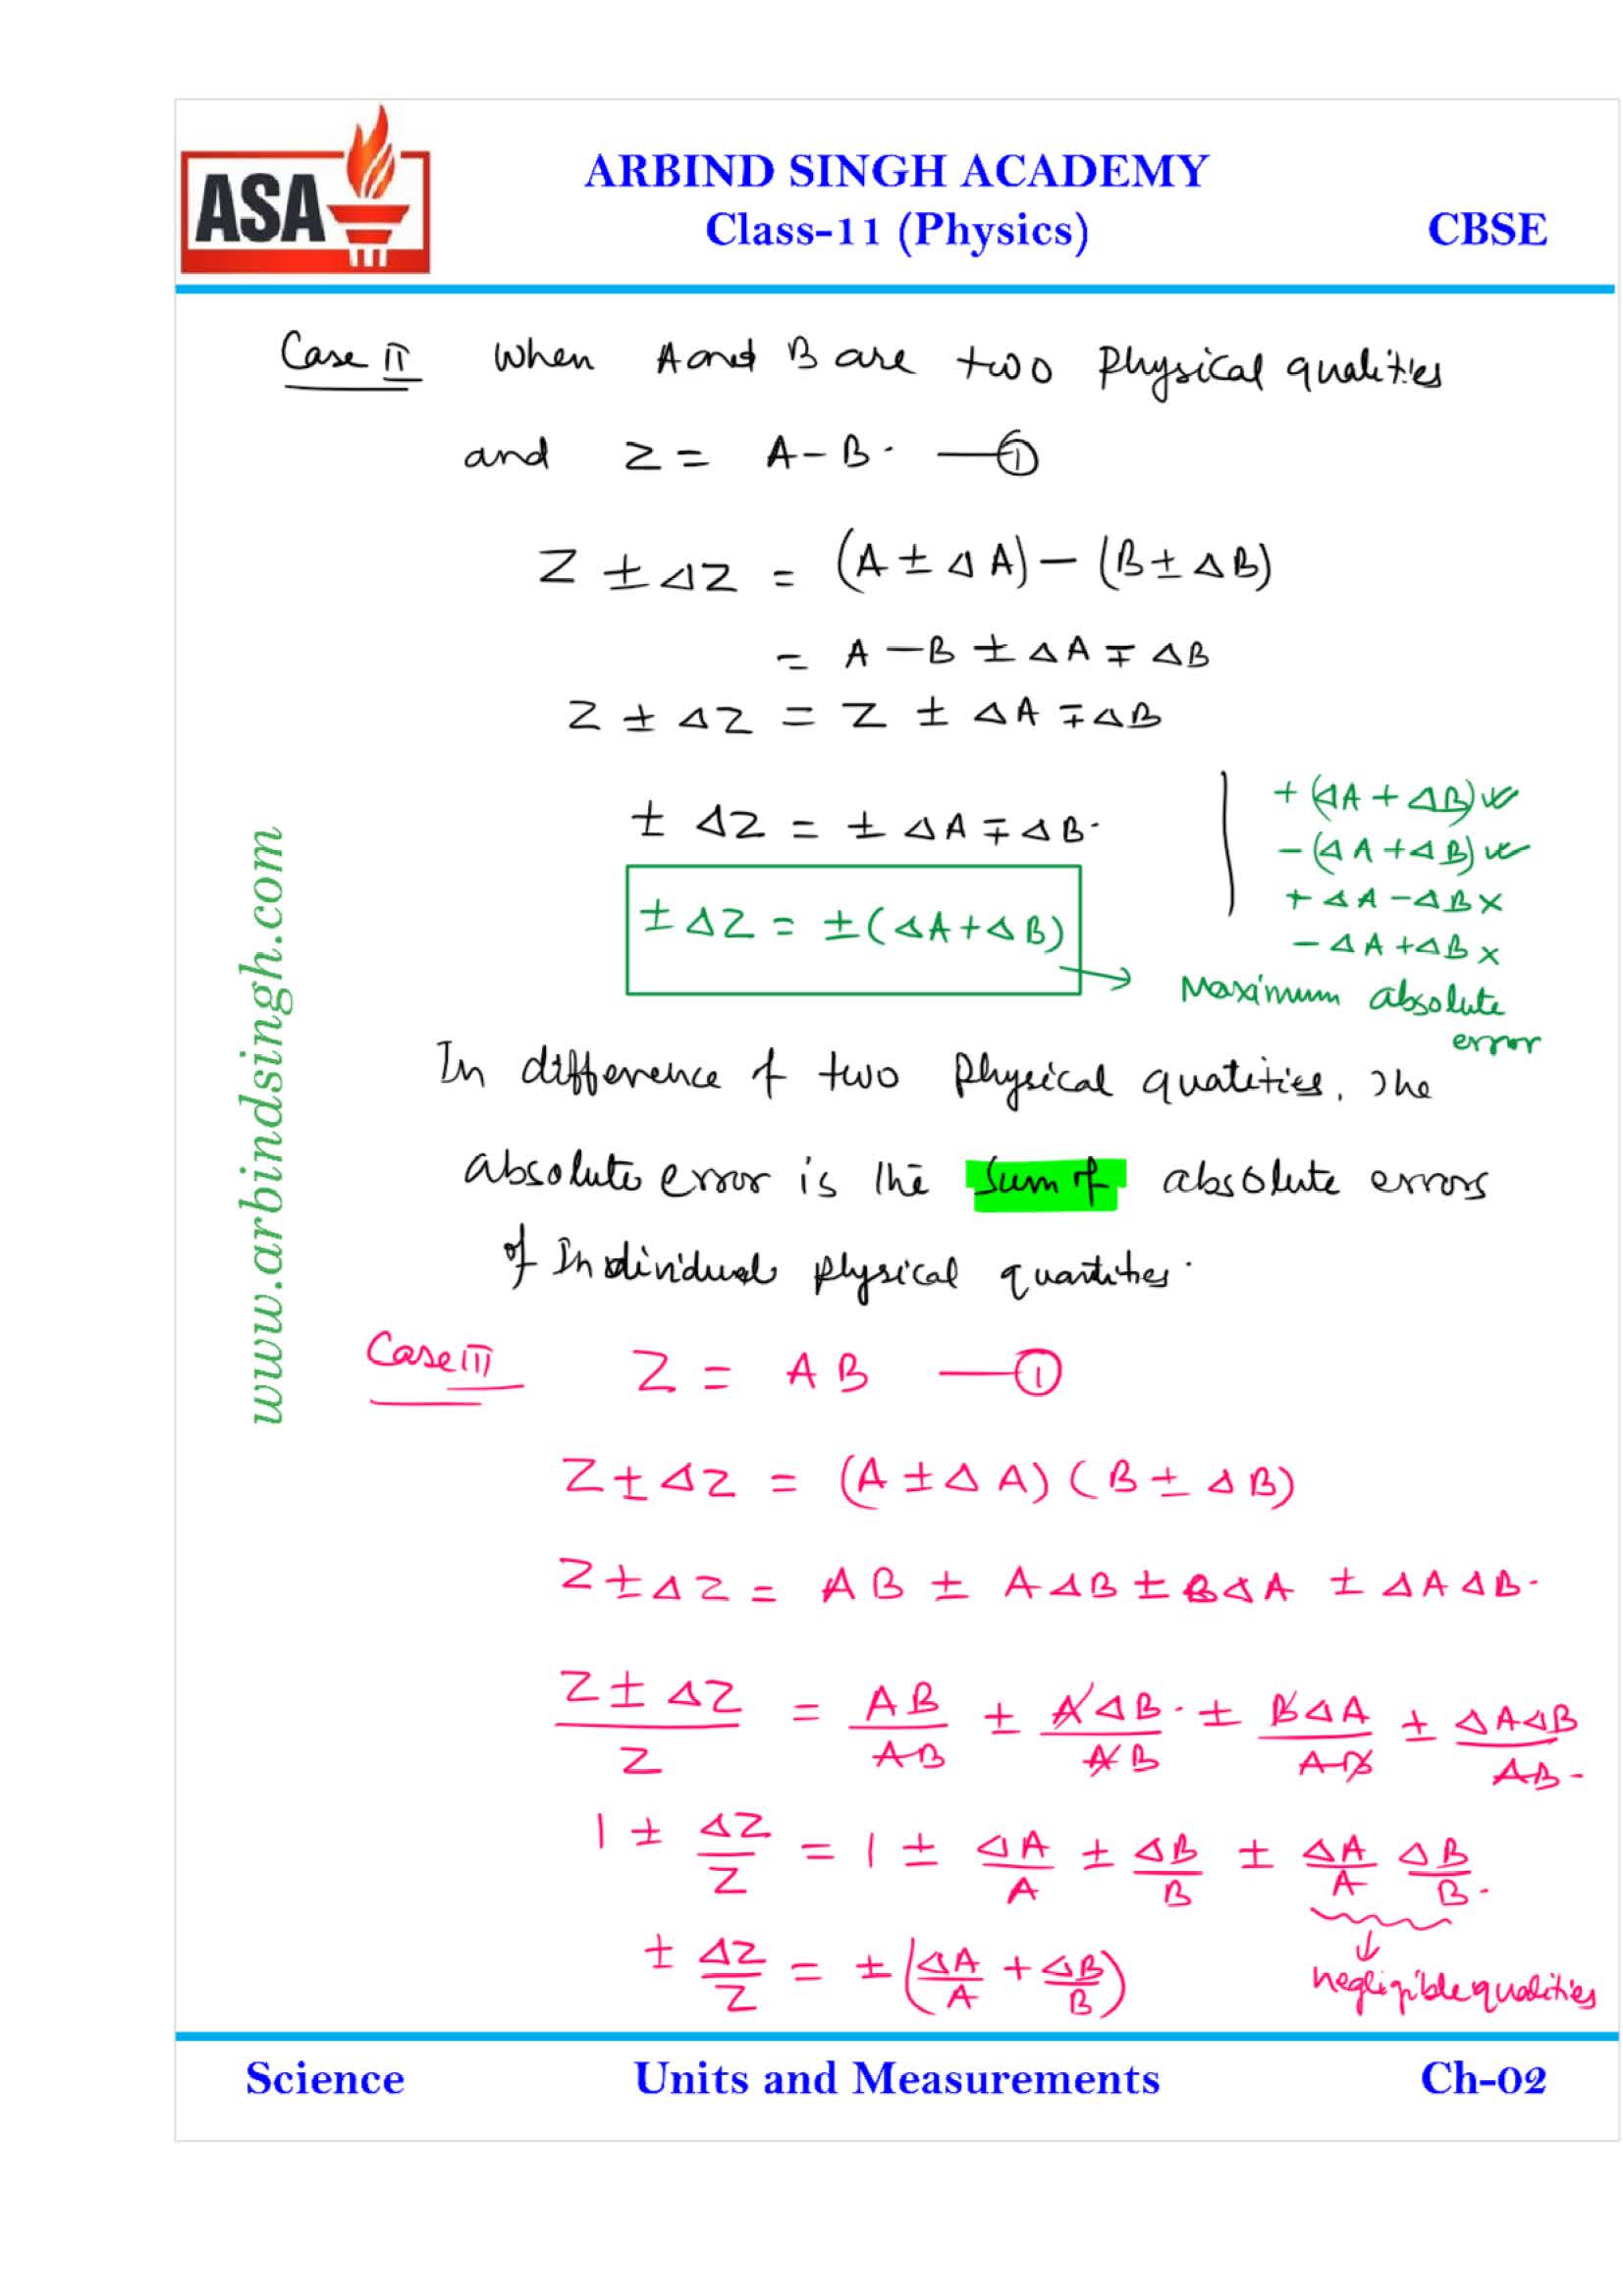 ASA
ARBIND SINGH ACADEMY
Class-11 (Physics)
CBSE
Case II When A and B are two Physical qualities
and Z = A - B. —①
Z ± ΔZ = (A ± ΔA) - (B ± ΔB)
= A - B ± ΔA ∓ ΔB
Z ± ΔZ = Z ± ΔA ∓ ΔB
± ΔZ = ± ΔA ∓ ΔB.
+ (ΔA + ΔB) ✓
- (ΔA + ΔB) ✓
+ ΔA - ΔB ×
- ΔA + ΔB ×
± ΔZ = ± (ΔA + ΔB)
Maximum absolute
error
In difference of two Physical quatities, The
absolute error is the Sum of absolute errors
of Individual physical quantities.
Case III Z = AB —①
Z ± ΔZ = (A ± ΔA) (B ± ΔB)
Z ± ΔZ = AB ± AΔB ± BΔA ± ΔAΔB.
(Z ± ΔZ)/Z = AB/AB ± AΔB/AB ± BΔA/AB ± ΔAΔB/AB.
1 ± ΔZ/Z = 1 ± ΔA/A ± ΔB/B ± ΔA/A ΔB/B.
± ΔZ/Z = ± (ΔA/A + ΔB/B)
negligible qualities
www.arbindsingh.com
Science
Units and Measurements
Ch-02